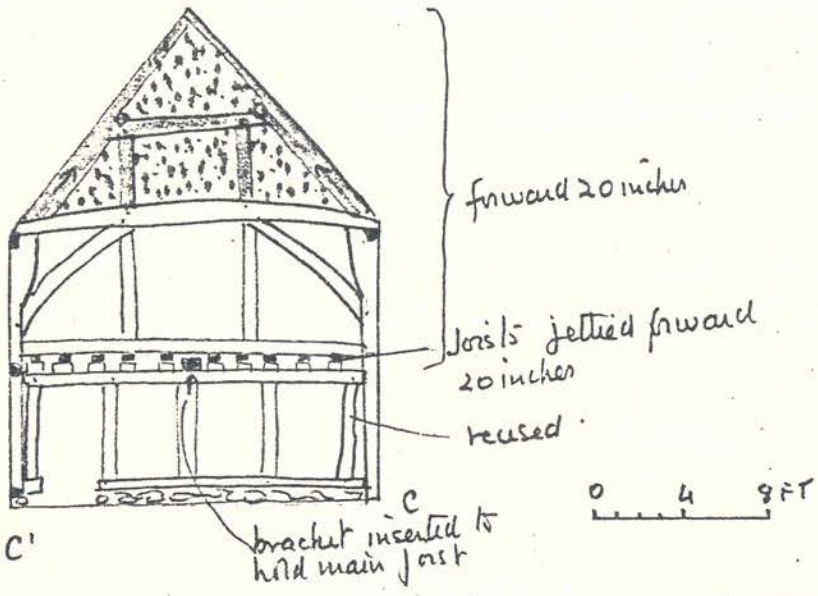 forward 20 inches
Joists jettied forward
20 inches
reused
0 4 8 FT
C
C'
bracket inserted to
hold main joist